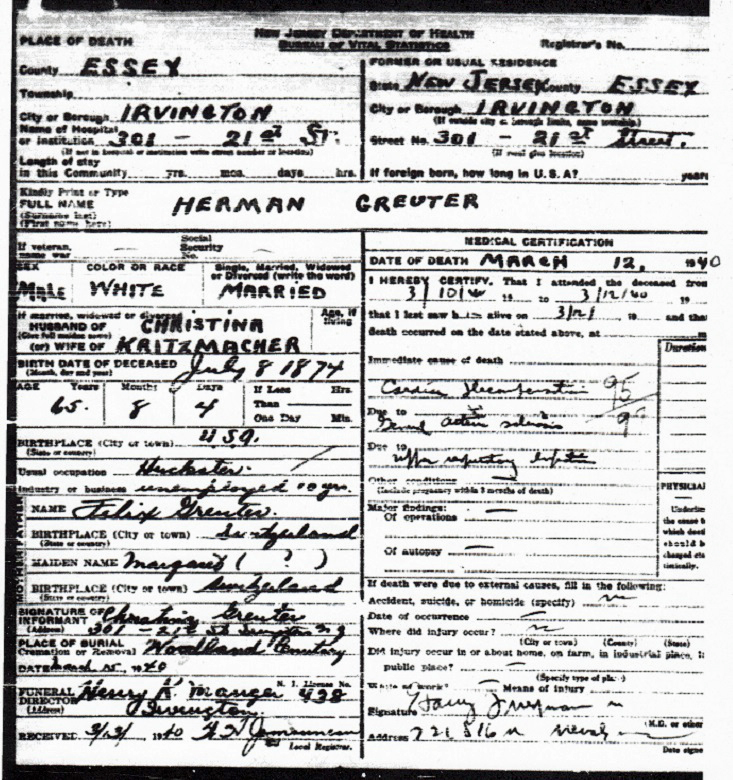 NEW JERSEY DEPARTMENT OF HEALTH
BUREAU OF VITAL STATISTICS
Registrar's No.
PLACE OF DEATH
County ESSEX
Township
City or Borough IRVINGTON
Name of Hospital
or institution 301 - 21st St.
(If not in hospital or institution write street number or location)
Length of stay
in this Community yrs. mos. days hrs.
FORMER OR USUAL RESIDENCE
State NEW JERSEY County ESSEX
City or Borough IRVINGTON
(If outside city or borough limits, name township)
Street No. 301 - 21st Street.
(If rural give location)
If foreign born, how long in U.S.A? years
Kindly Print or Type
FULL NAME HERMAN GREUTER
(Surname last)
(First name here)
If veteran, name war
Social Security No.
SEX
Male
COLOR OR RACE
WHITE
Single, Married, Widowed
or Divorced (write the word)
MARRIED
If married, widowed or divorced
HUSBAND OF CHRISTINA
(Give full maiden name)
(or) WIFE OF KRITZMACHER
Age, if living
BIRTH DATE OF DECEASED July 8 1874
(Month, day and year)
AGE Years Months Days If Less Than One Day Hrs. Min.
65. 8 4
BIRTHPLACE (City or town) U.S.A.
(State or country)
Usual occupation Huckster.
Industry or business unemployed 10 yrs.
NAME Felix Greuter.
BIRTHPLACE (City or town) Switzerland
(State or country)
MAIDEN NAME Margaret ( ? )
BIRTHPLACE (City or town) Switzerland
(State or country)
SIGNATURE OF
INFORMANT Christina Greuter
(Address) 301 - 21st St Irvington N J
PLACE OF BURIAL
Cremation or Removal Woodland Cemetery
DATE March 15, 1940
N. J. License No.
FUNERAL
DIRECTOR Henry K. Manger 438
(Address) Irvington
RECEIVED 3/13/ 1940
Local Registrar.
MEDICAL CERTIFICATION
DATE OF DEATH MARCH 12, 1940
I HEREBY CERTIFY, That I attended the deceased from
3/10/40 19 to 3/12/40 19
that I last saw him alive on 3/12/ 19 and that
death occurred on the date stated above, at m
Duration
Immediate cause of death
Cardiac 95
Due to
sclerosis
Due to
upper respiratory
Other conditions
(Include pregnancy within 3 months of death)
Major findings:
Of operations
Of autopsy
PHYSICIAN
Underline
the cause
which death
should b
charged sta
tistically.
If death were due to external causes, fill in the following:
Accident, suicide, or homicide (specify)
Date of occurrence
Where did injury occur?
(City or town) (County) (State)
Did injury occur in or about home, on farm, in industrial place, i
public place?
(Specify type of place)
While at work? Means of injury
Signature Harry
M.D. or other
Address
Date signe